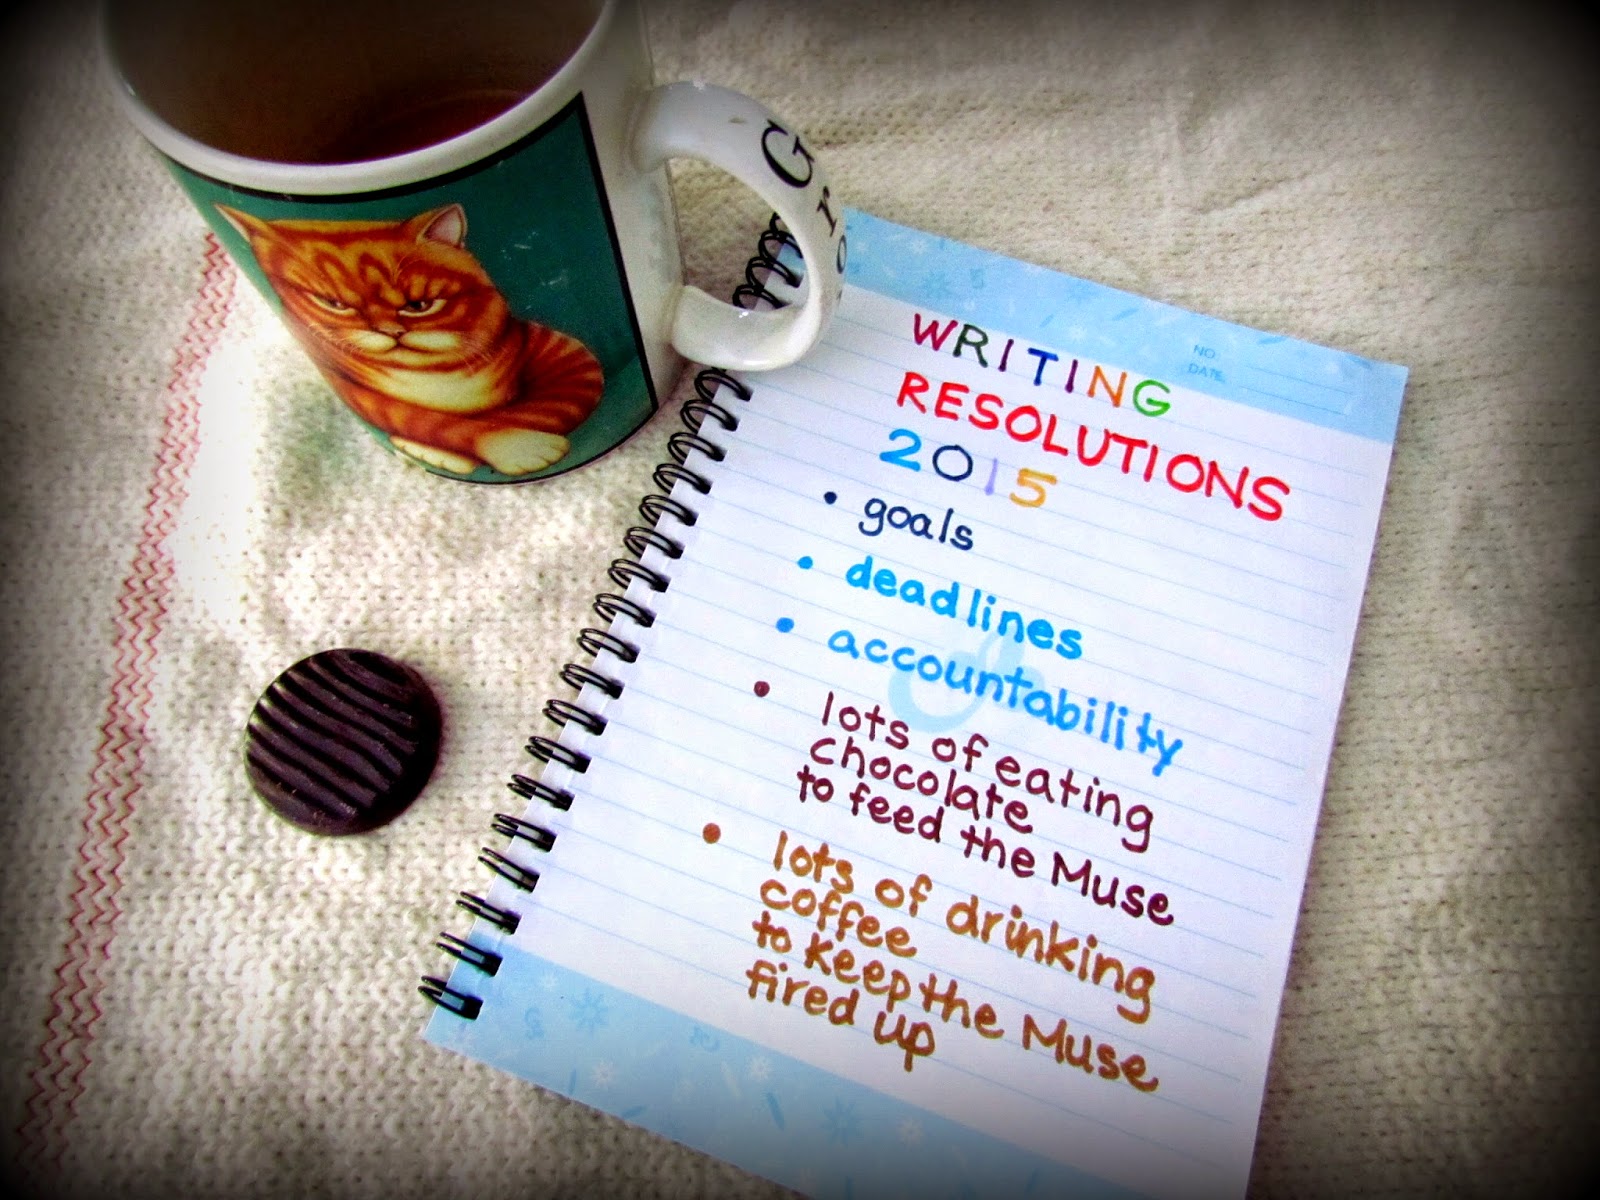 Gro
NO.
DATE
WRITING
RESOLUTIONS
2015
• goals
• deadlines
• accountability
• lots of eating
chocolate
to feed the Muse
• lots of drinking
coffee
to keep the Muse
fired up